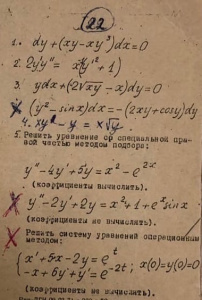 22
1. dy+(xy-xy³)dx=0
2. 2y'y''= (y'²+1)
3. ydx+(2√xy-x)dy=0
(y²-sinx)dx=-(2xy+cosy)dy
4. xy' - y = x√y
5. Решить уравнение со специальной пра-
вой частью методом подбора:
y''-4y'+5y=x²-e²ˣ
(коэффициенты вычислить).
y''-2y'+2y=x²+1+eˣsinx
(коэффициенты не вычислять).
Решить систему уравнений операционным
методом:
{x'+5x-2y=eᵗ
{-x+6y+y'=e⁻²ᵗ; x(0)=y(0)=0
(коэффициенты не вычислять).